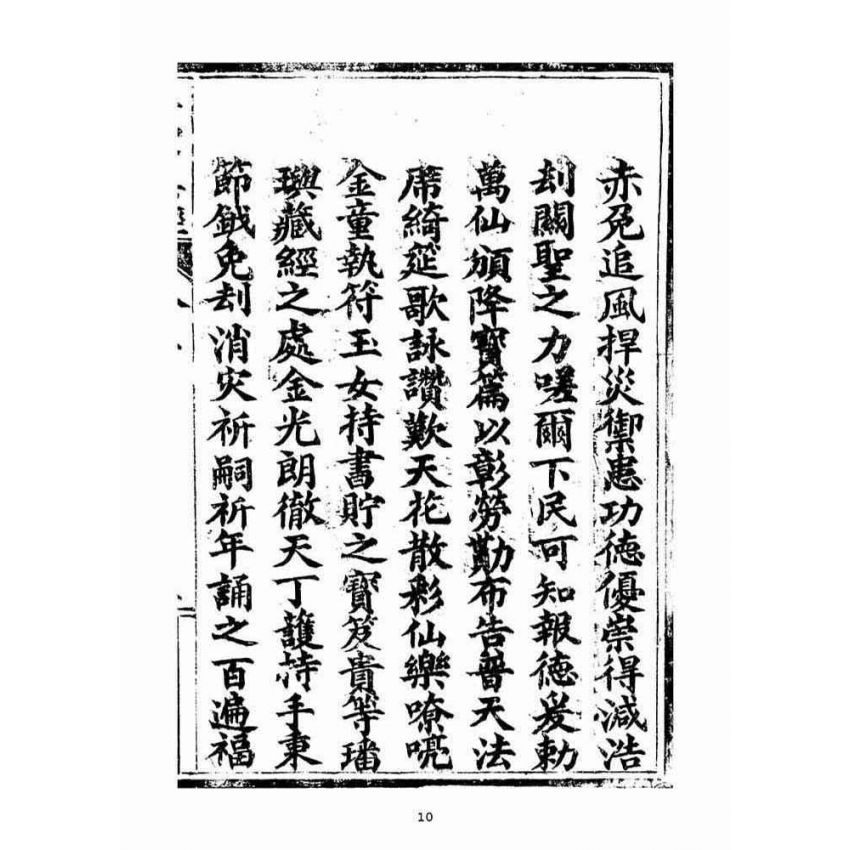 赤兔追風捍災禦患功徳優崇得減浩
刦關聖之力嗟爾下民可知報徳爰勅
萬仙頒降寳篇以彰勞勩布告普天法
席綺筵歌詠讚歎天花散彩仙樂嘹喨
金童執符玉女持書貯之寳笈貴等璠
璵藏經之處金光朗徹天丁護持手秉
節鉞免刦消灾祈嗣祈年誦之百遍福
10